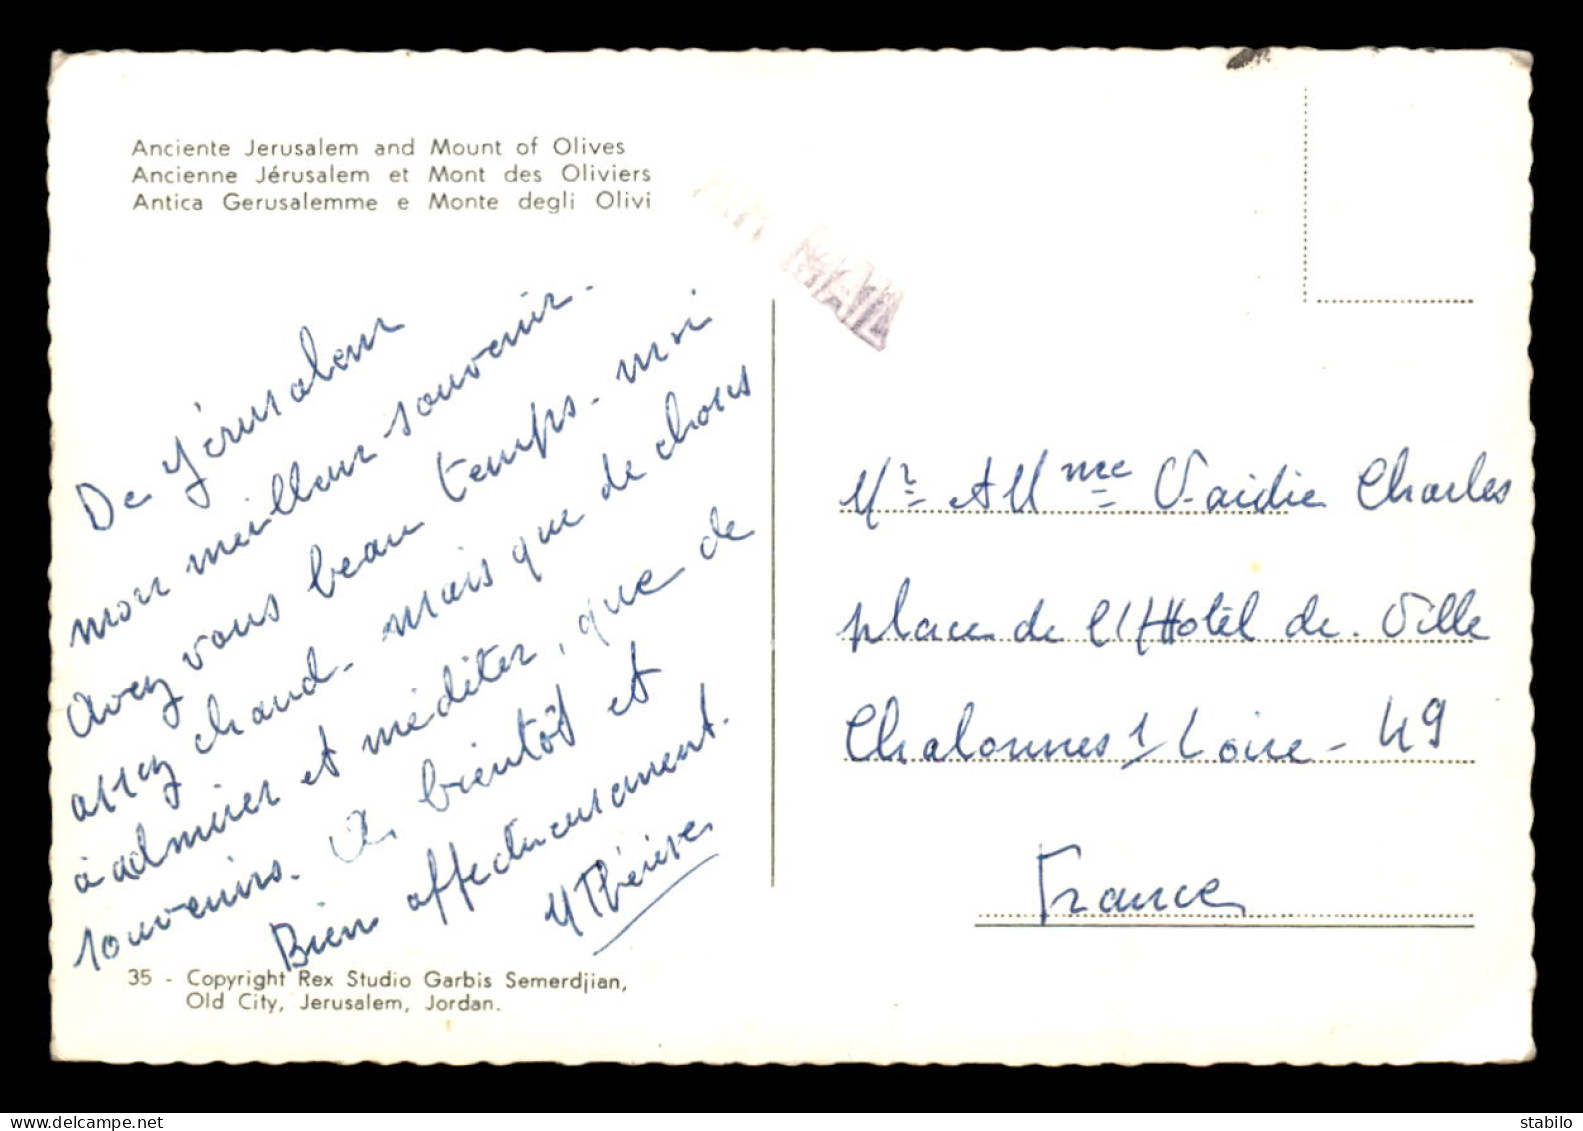 Anciente Jerusalem and Mount of Olives
Ancienne Jérusalem et Mont des Oliviers
Antica Gerusalemme e Monte degli Olivi
AIR MAIL
De Jérusalem
mon meilleur souvenir.
Avez vous beau temps. moi
assez chaud. mais que de choses
à admirer et méditer, que de
souvenirs. A bientôt et
Bien affectueusement.
M Thérèse
35 - Copyright Rex Studio Garbis Semerdjian,
Old City, Jerusalem, Jordan.
Mr et Mme Vaidie Charles
place de l'Hôtel de Ville
Chalonnes s/ Loire - 49
France
delcampe.net
stabilo